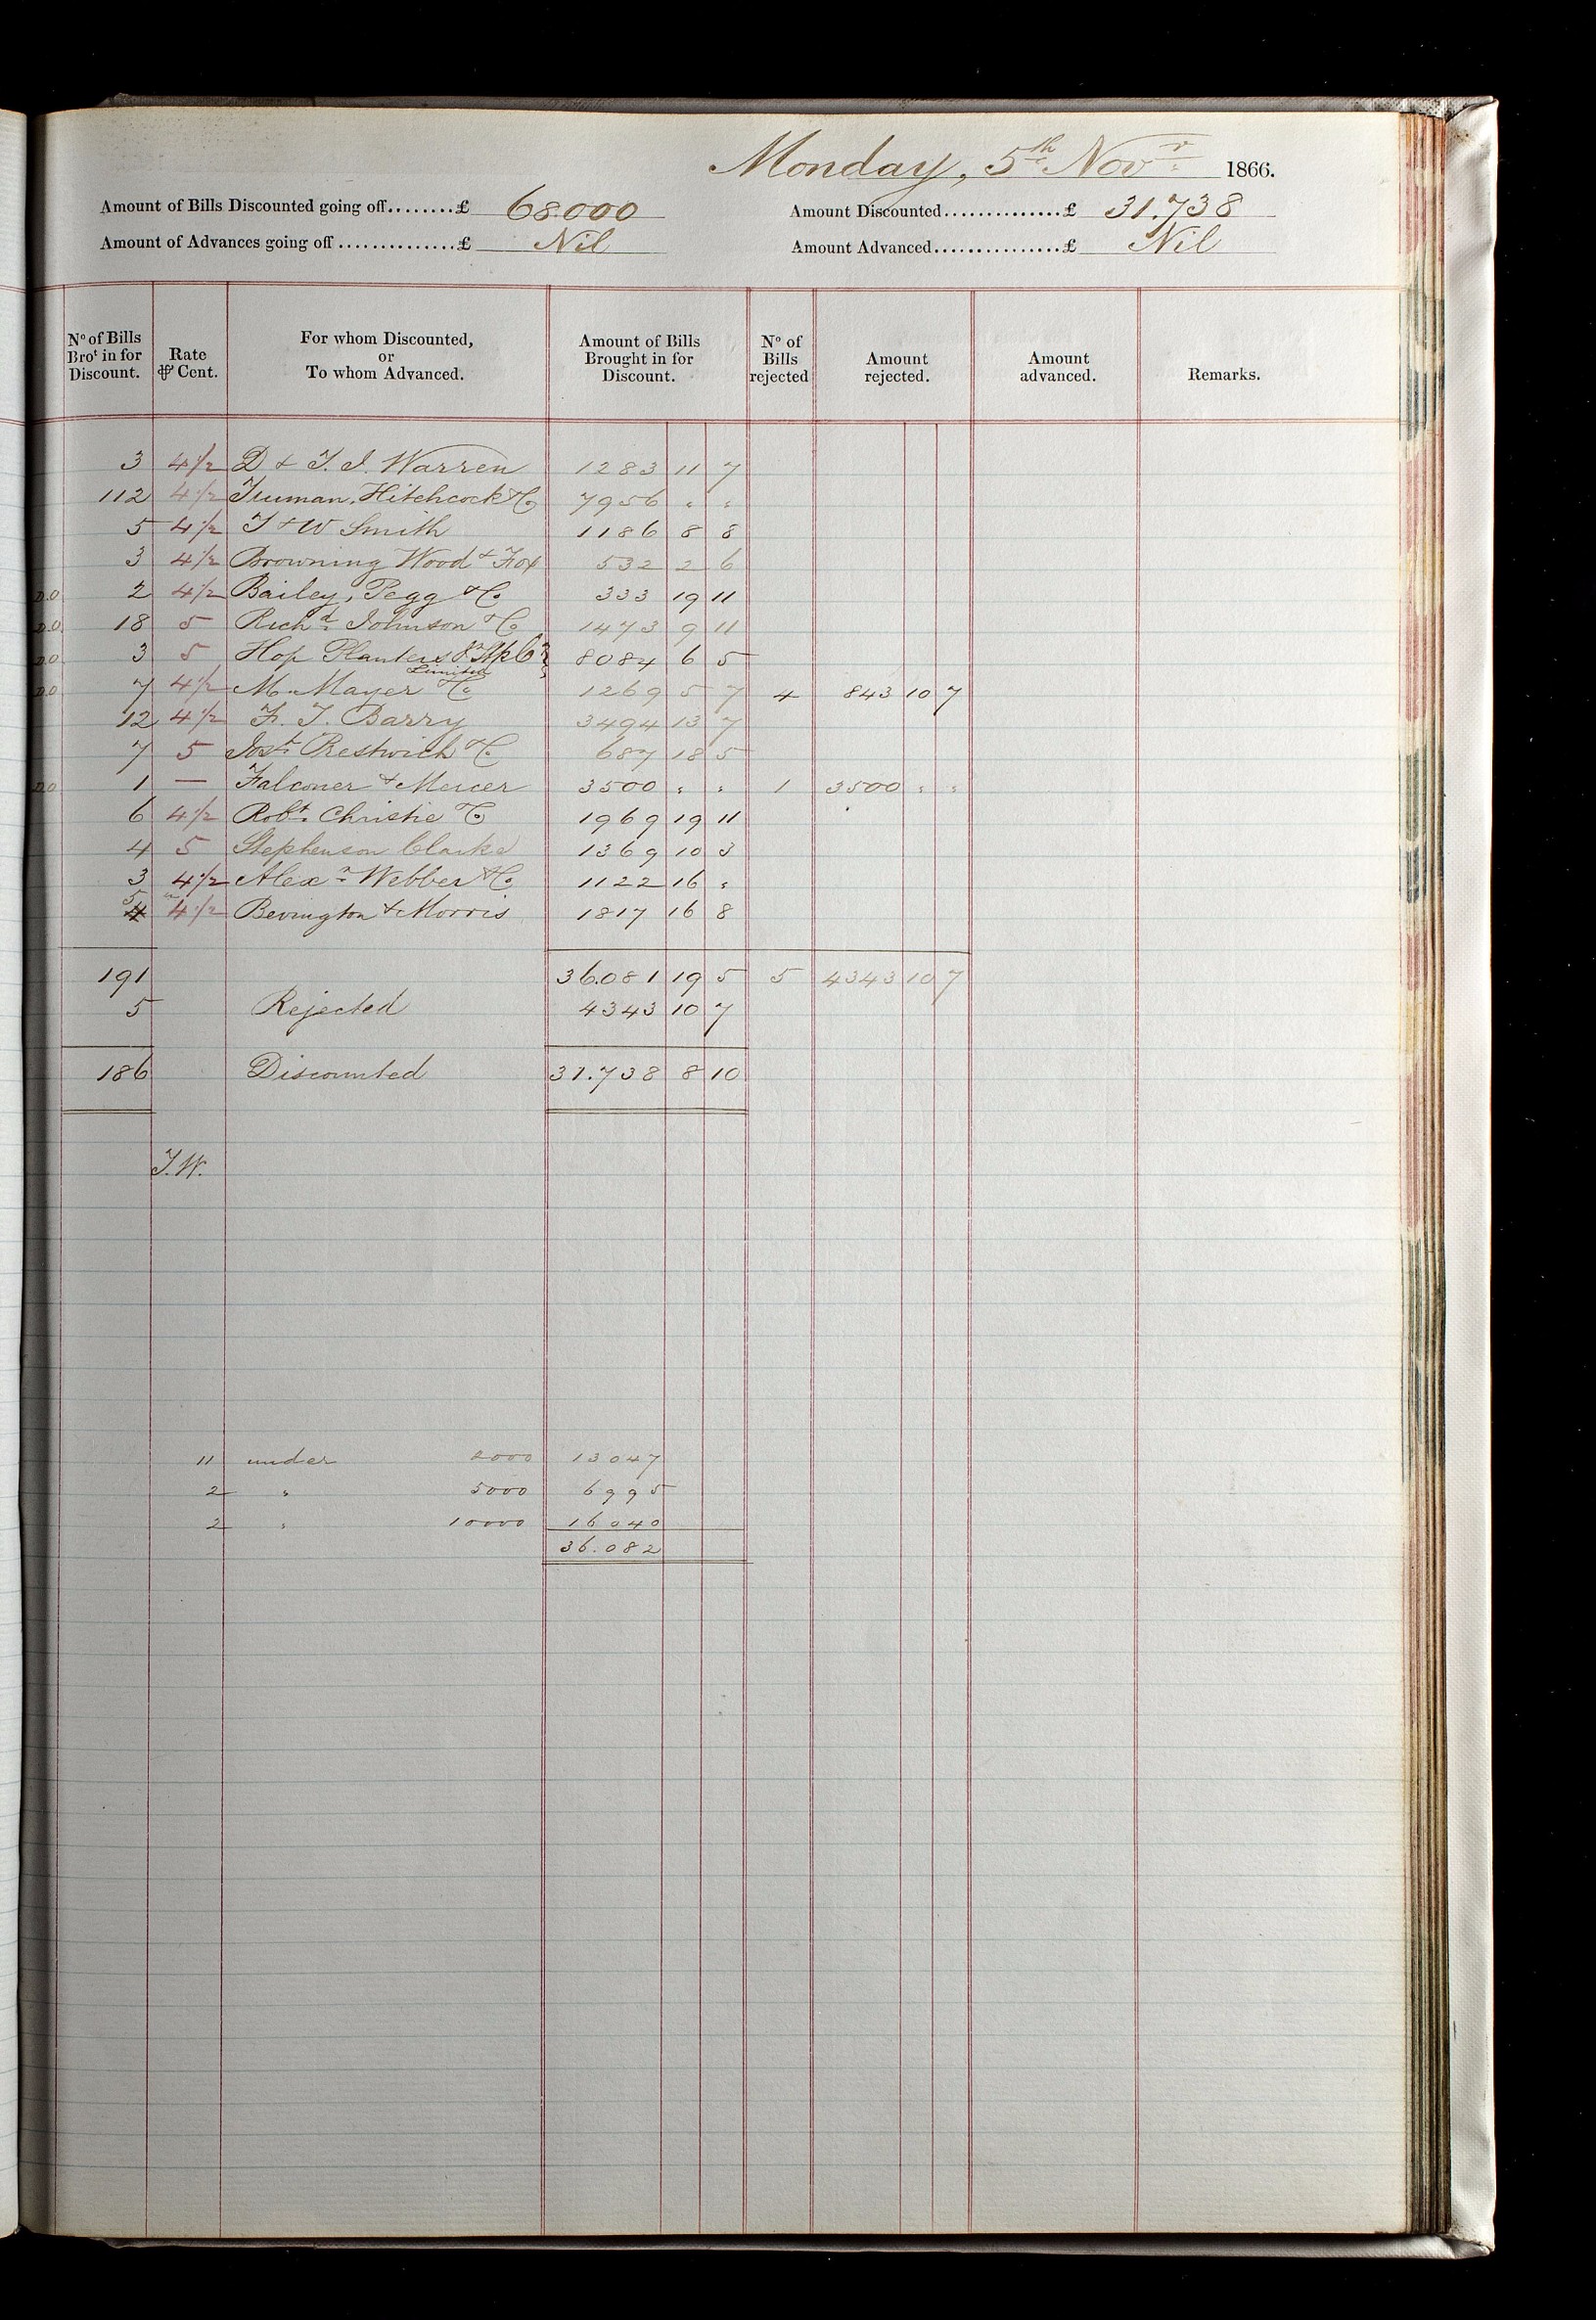 Monday, 5th Novr 1866.
Amount of Bills Discounted going off........£ 68.000 Amount Discounted..............£ 31.738
Amount of Advances going off ...............£ Nil Amount Advanced................£ Nil
No of Bills Brot in for Discount. Rate ⅌ Cent. For whom Discounted, or To whom Advanced. Amount of Bills Brought in for Discount. No of Bills rejected Amount rejected. Amount advanced. Remarks.
3 4½ D & T. J. Warren 1283 11 7
112 4½ Truman, Hitchcock & Co 7956 " "
5 4½ T & W Smith 1186 8 8
3 4½ Browning Wood & Fox 532 2 6
D.O. 2 4½ Bailey, Pegg & Co 333 19 11
D.O. 18 5 Richd. Johnson & Co 1473 9 11
D.O 3 5 Hop Planters 8084 6 5
Limited
D.O 7 4½ M. Mayer & Co 1269 5 7 4 843 10 7
12 4½ F. T. Barry 3494 13 7
7 5 Prestwich & Co 687 18 5
D.O 1 — Falconer & Mercer 3500 " " 1 3500 " "
6 4½ Robt. Christie & Co 1969 19 11
4 5 Stephenson Clarke 1369 10 3
3 4½ Alexr Webber & Co 1122 16 "
5 4½ Bevington & Morris 1817 16 8
191 36.081 19 5 5 4343 10 7
5 Rejected 4343 10 7
186 Discounted 31.738 8 10
T.W.
11 under 2000 13047
2 " 5000 6995
2 " 10000 16040
36.082